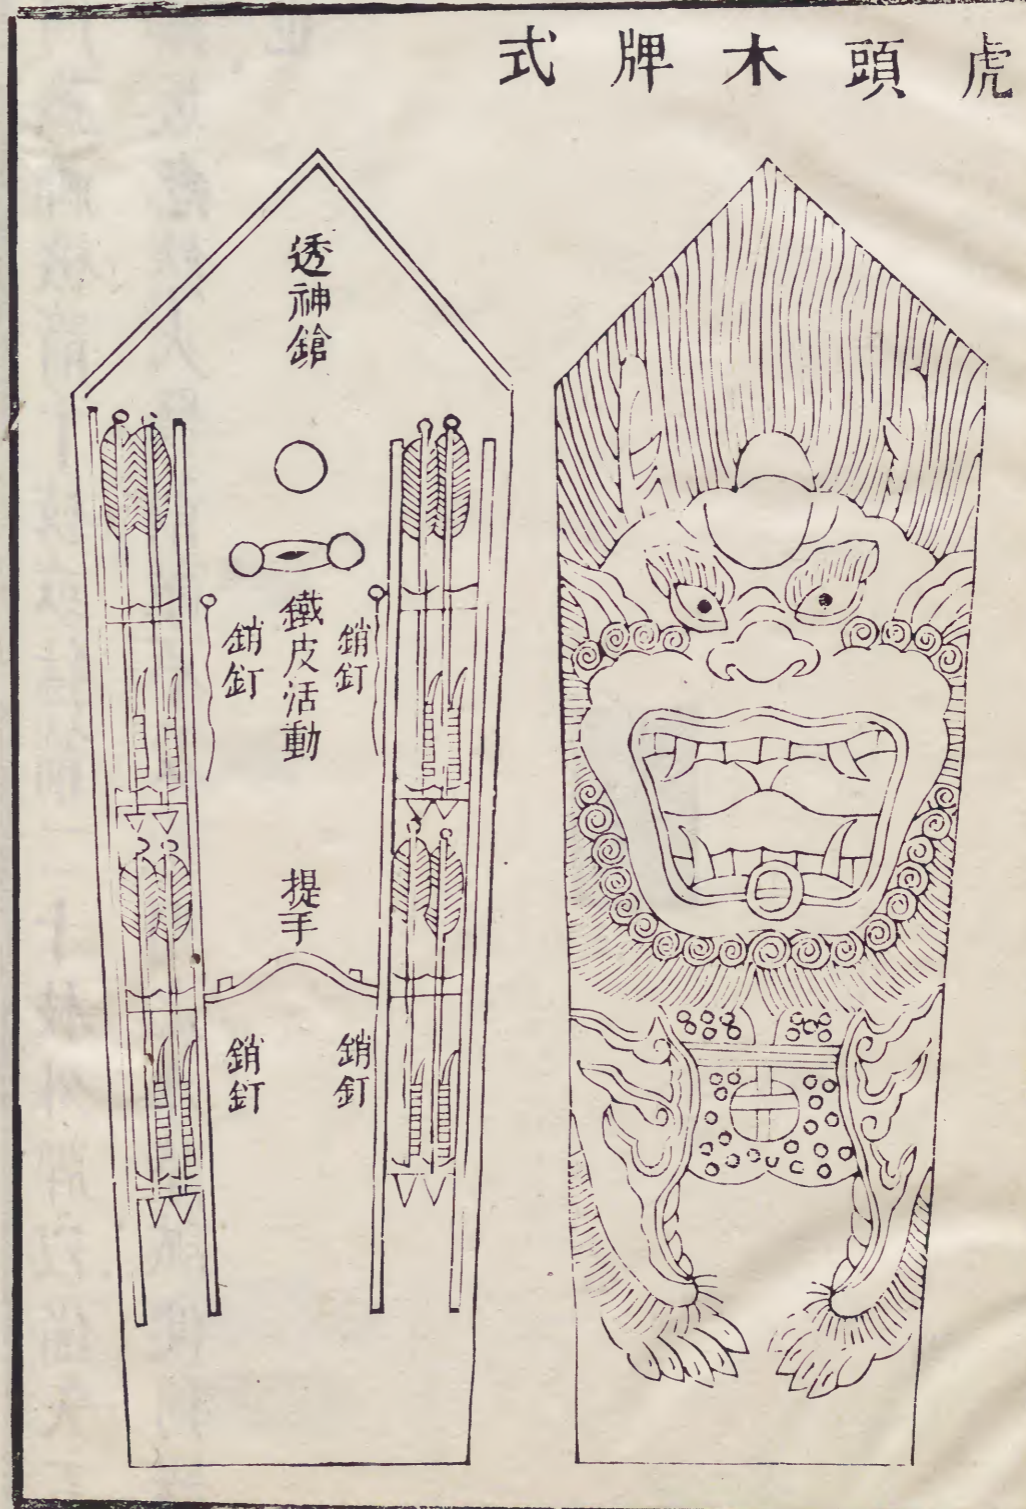 虎頭木牌式
透神鎗
鐵皮活動
銷釘
銷釘
提手
銷釘
銷釘